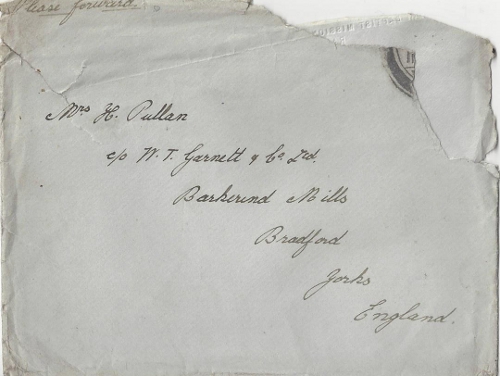 Please forward.
Mrs H. Pullan
c/o W. T. Garnett & Co Ltd.
Barkerend Mills
Bradford
Yorks
England.